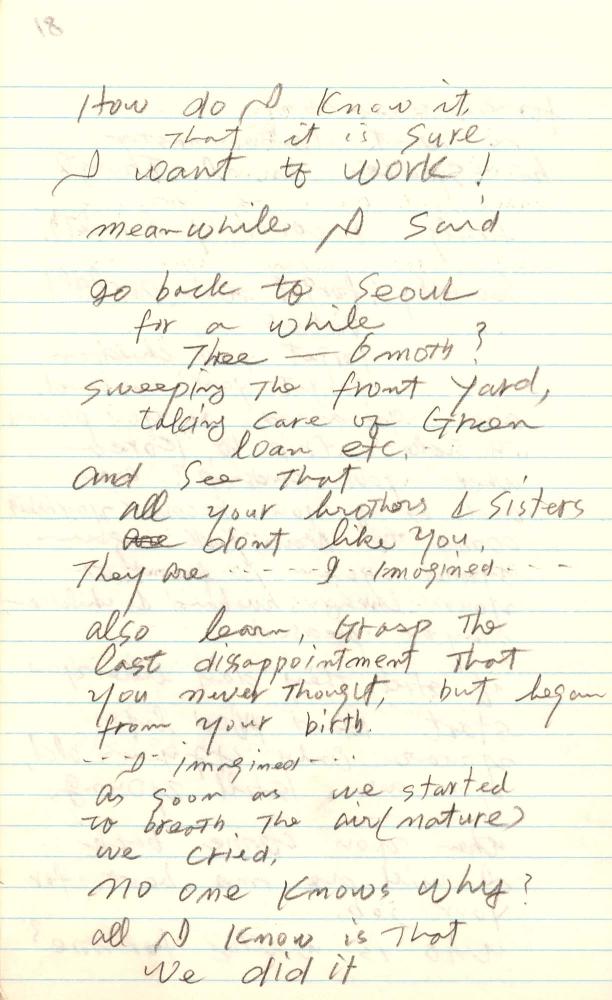 18
How do I know it,
That it is sure.
I want to work!
meanwhile I said
go back to Seoul
for a while
Three — 6 moth?
sweeping The front yard,
taking care of Green
loan etc.
and see That
all your brothers & sisters
are dont like you.
They are ------ I imagined ---
also learn, Grasp The
last disappointment That
you never Thought, but began
from your birth.
--- I imagined ---
as soon as we started
to breath The air (nature)
we cried,
no one knows why?
all I know is That
we did it